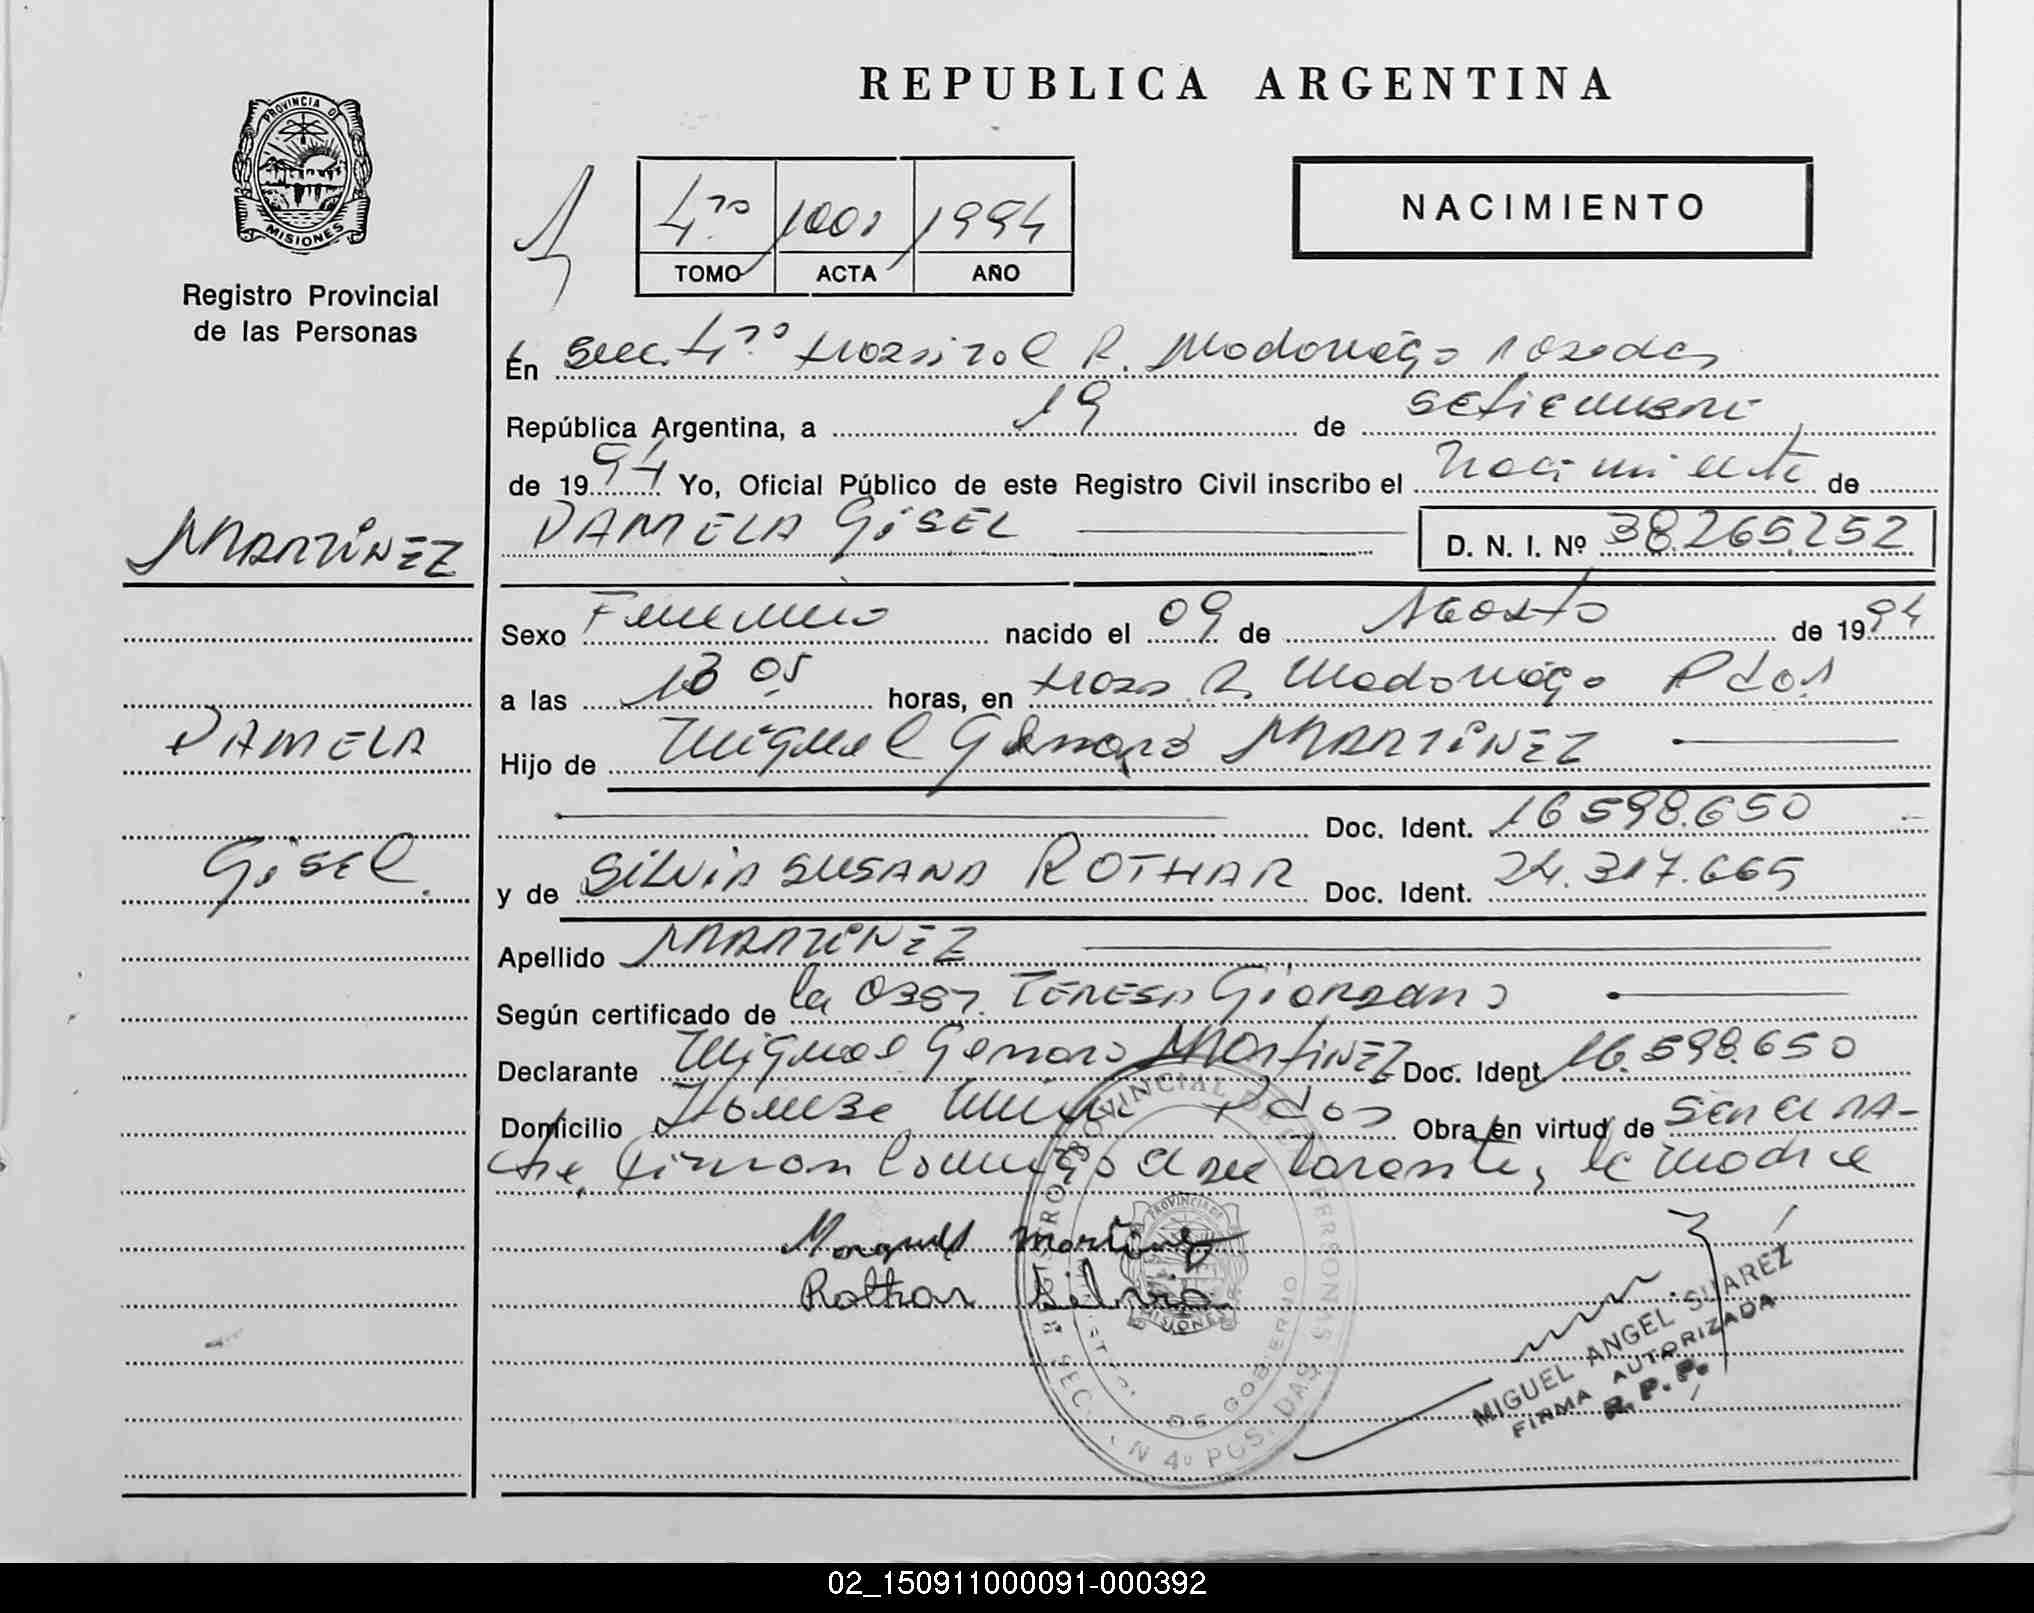 REPUBLICA ARGENTINA
PROVINCIA DE
MISIONES
Registro Provincial
de las Personas
NACIMIENTO
4to 1001 1994
TOMO ACTA AÑO
En Secc. 4to Hospital R. Madariaga Posadas
República Argentina, a 19 de setiembre
de 1994 Yo, Oficial Público de este Registro Civil inscribo el Nacimiento de
PAMELA GISEL D. N. I. Nº 38.265.252
MARTINEZ
Sexo Femenino nacido el 09 de Agosto de 1994
a las 13 05 horas, en Hosp. R. Madariaga Pdas
PAMELA
Hijo de Miguel Genaro MARTINEZ
Doc. Ident. 16.598.650
GISEL
y de SILVIA SUSANA ROTHAR Doc. Ident. 24.317.665
Apellido MARTINEZ
Según certificado de la Obst. TERESA Giordano
Declarante Miguel Genaro Martinez Doc. Ident. 16.598.650
Domicilio Pdas Obra en virtud de ser el pa-
dre, Firman Conmigo el declarante, la madre
Martinez
Rothar Silvia
REGISTRO PROVINCIAL DE LAS PERSONAS
PROVINCIA DE
MISIONES
DE GOBIERNO
SECCION 4º POSADAS
MIGUEL ANGEL SUAREZ
FIRMA AUTORIZADA
R.P.P.
02_150911000091-000392